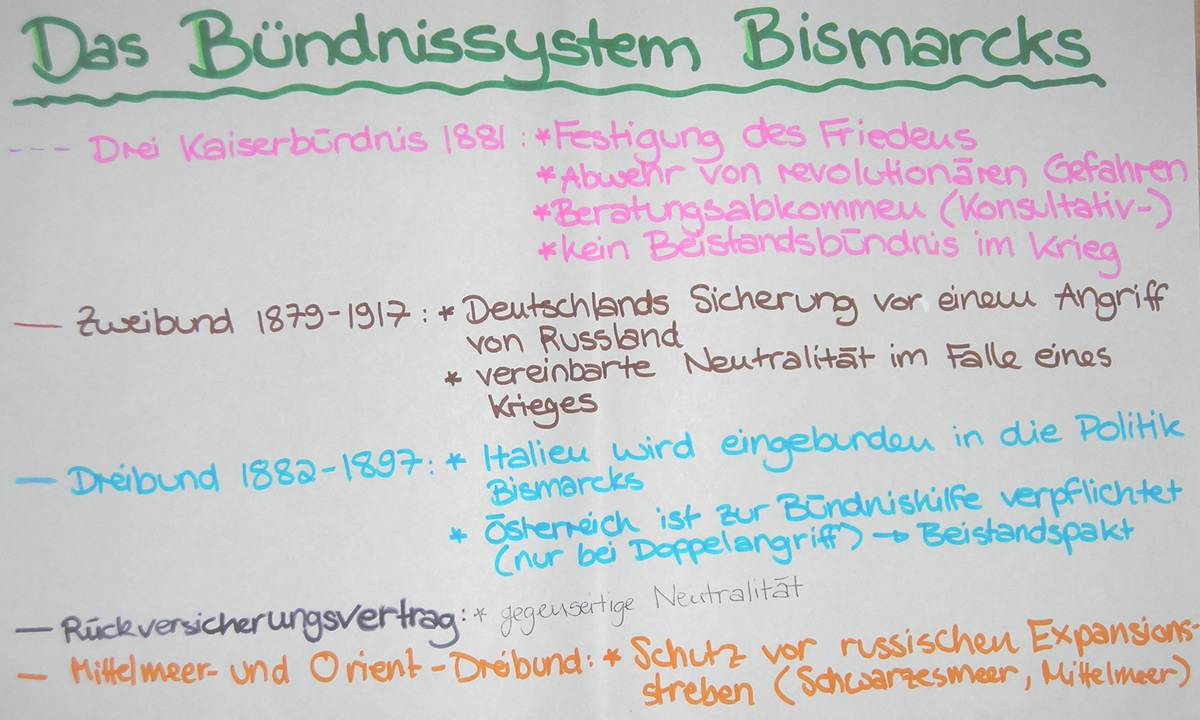 Das Bündnissystem Bismarcks
--- Drei Kaiserbündnis 1881: *Festigung des Friedens
*Abwehr von revolutionären Gefahren
*Beratungsabkommen (Konsultativ-)
*kein Beistandsbündnis im Krieg
— Zweibund 1879-1917: * Deutschlands Sicherung vor einem Angriff
von Russland
* vereinbarte Neutralität im Falle eines
Krieges
— Dreibund 1882-1897: * Italien wird eingebunden in die Politik
Bismarcks
* Österreich ist zur Bündnishilfe verpflichtet
(nur bei Doppelangriff) → Beistandspakt
— Rückversicherungsvertrag: * gegenseitige Neutralität
— Mittelmeer- und Orient-Dreibund: * Schutz vor russischen Expansions-
streben (Schwarzesmeer, Mittelmeer)